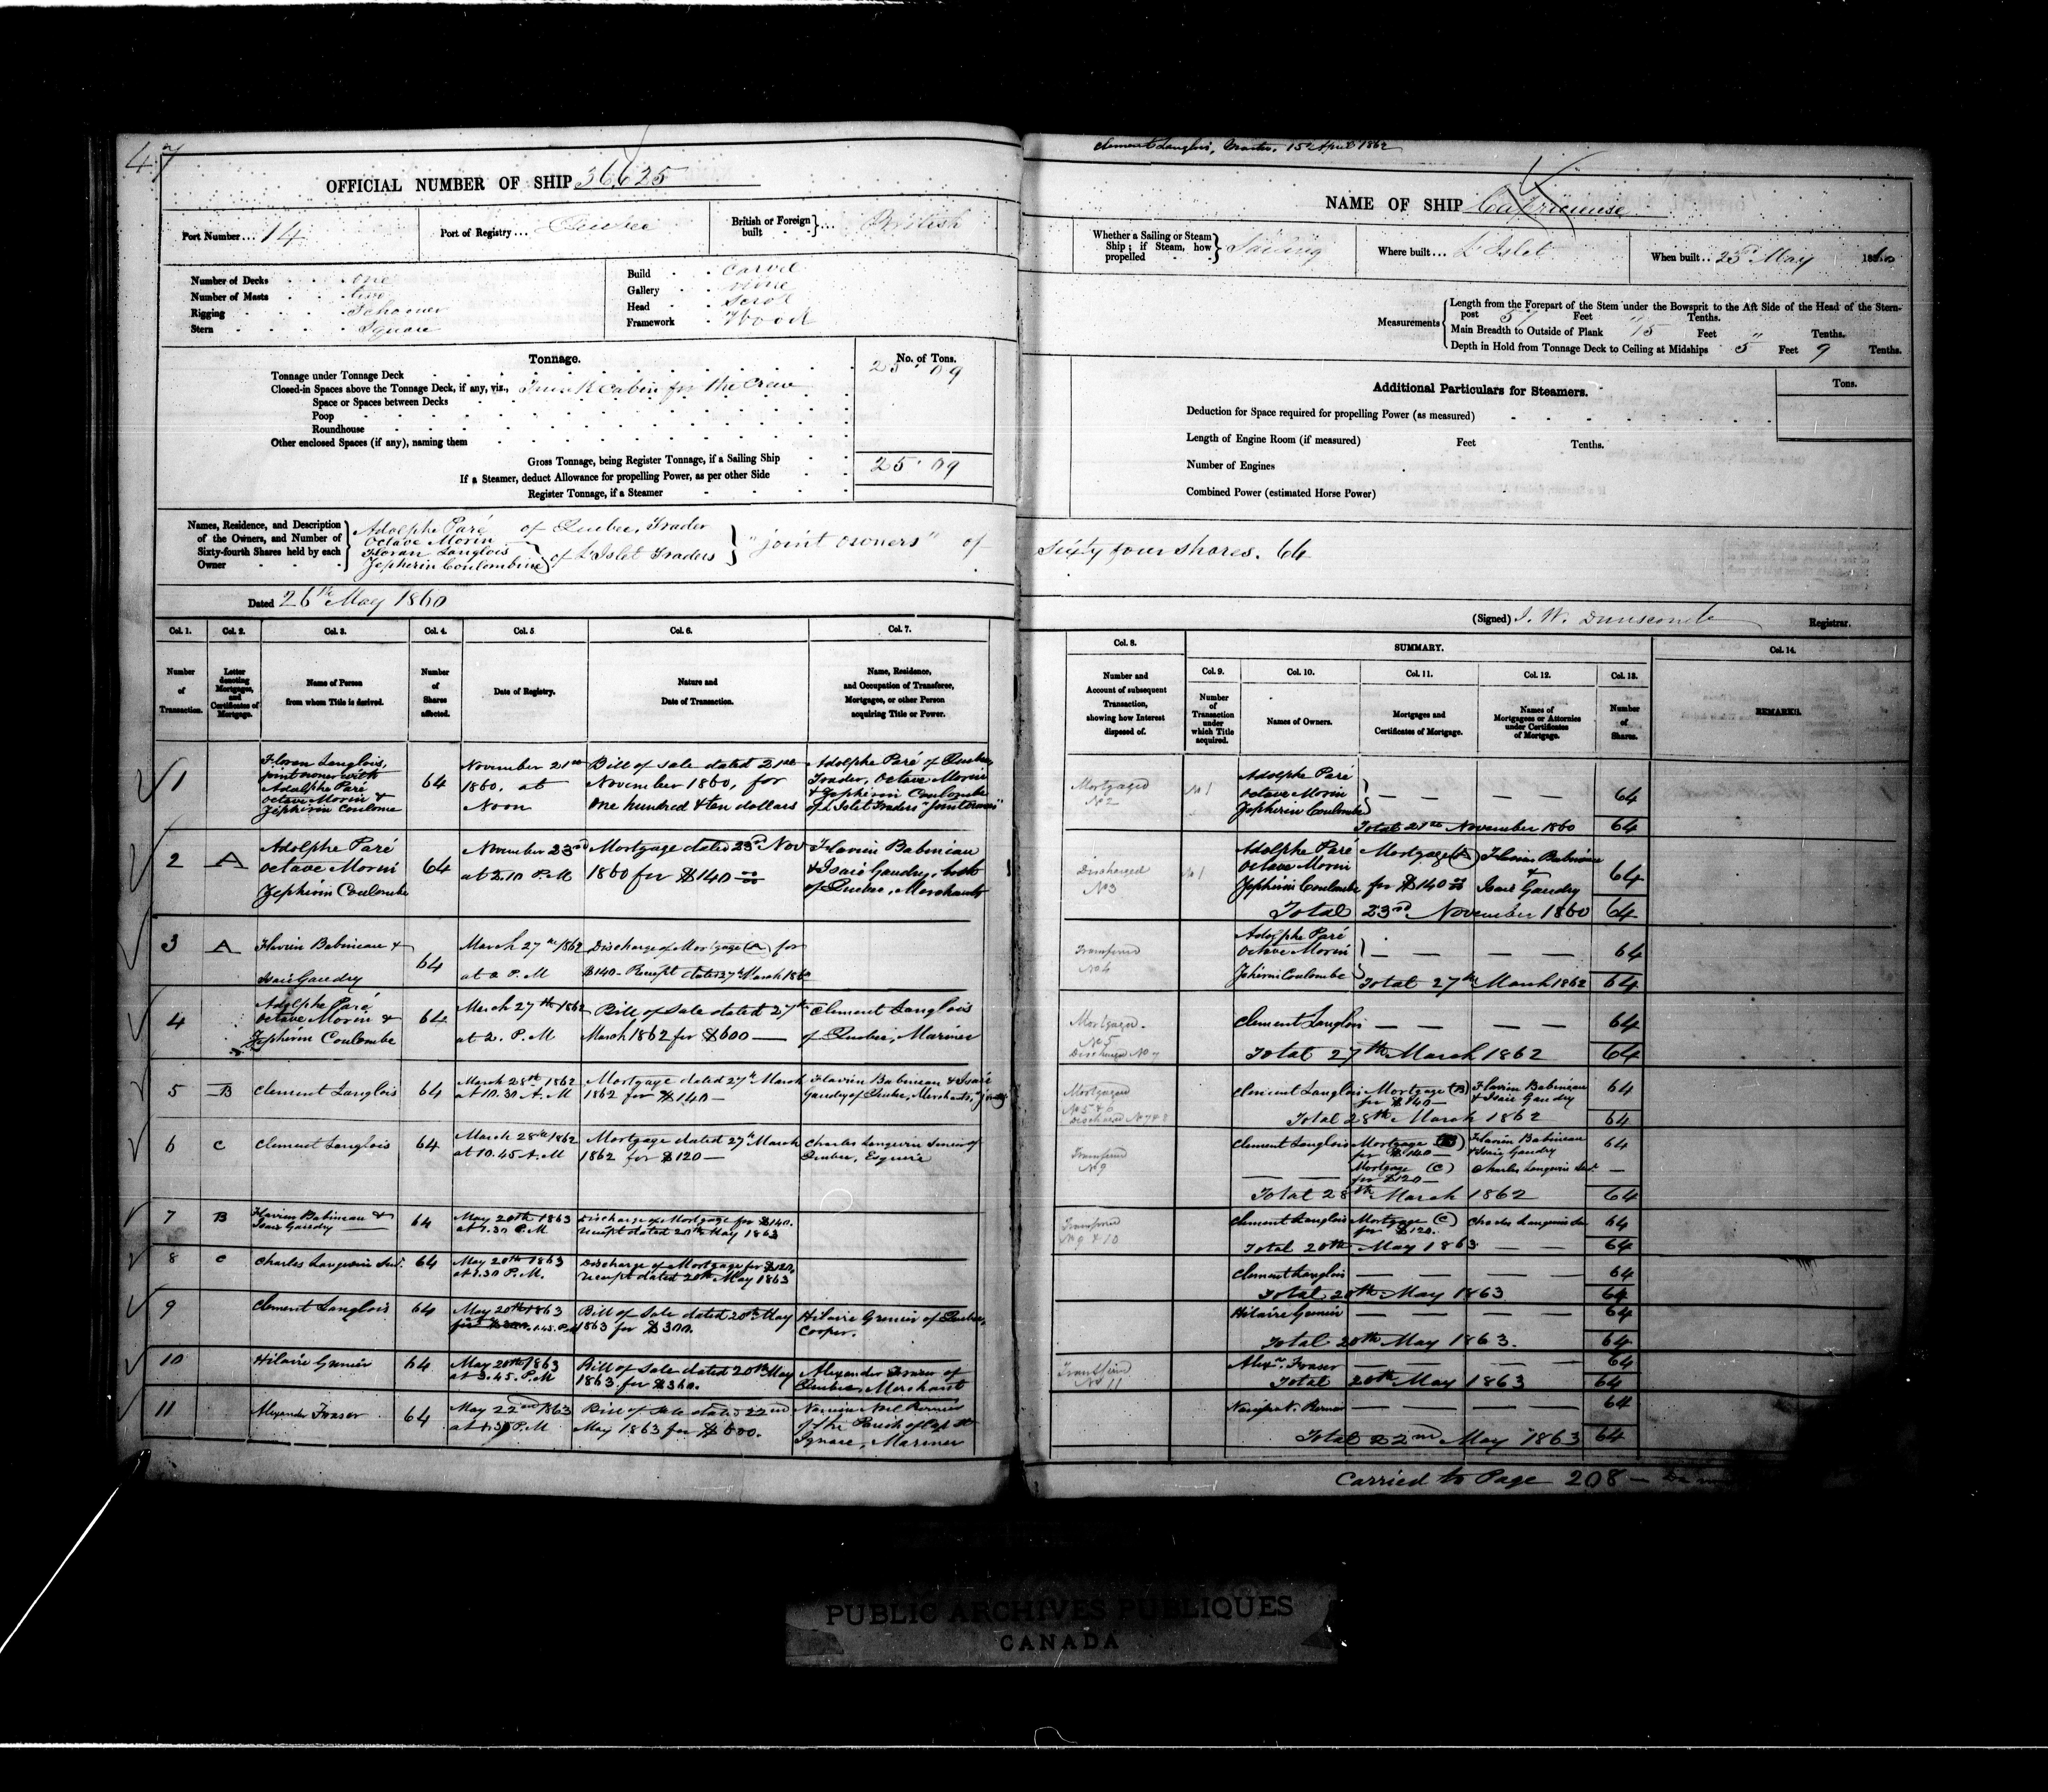 47
OFFICIAL NUMBER OF SHIP 36625
Port Number... 14
Port of Registry... Quebec
British or Foreign built } ... British
Number of Decks . . one
Number of Masts . . two
Rigging . . . Schooner
Stern . . . Square
Build . . Carvel
Gallery . . none
Head . . Scrol
Framework . Wood
Tonnage.
No. of Tons.
Tonnage under Tonnage Deck 25.09
Closed-in Spaces above the Tonnage Deck, if any, viz., Trunk Cabin for the Crew
Space or Spaces between Decks
Poop
Roundhouse
Other enclosed Spaces (if any), naming them
Gross Tonnage, being Register Tonnage, if a Sailing Ship 25.09
If a Steamer, deduct Allowance for propelling Power, as per other Side
Register Tonnage, if a Steamer
Names, Residence, and Description of the Owners, and Number of Sixty-fourth Shares held by each Owner
Adolphe Paré of Quebec, Trader
Octave Morin
Floran Langlois
Jepherin Coulombine } of L'Islet Traders } "joint owners" of
Dated 26th May 1860
Col. 1. Col. 2. Col. 3. Col. 4. Col. 5. Col. 6. Col. 7.
Number of Transaction.
Letter denoting Mortgages, and Certificates of Mortgage.
Name of Person from whom Title is derived.
Number of Shares affected.
Date of Registry.
Nature and Date of Transaction.
Name, Residence, and Occupation of Transferee, Mortgagee, or other Person acquiring Title or Power.
1 Floran Langlois, joint owner with Adolphe Paré Octave Morin & Jepherin Coulome 64 November 21st 1860. at Noon Bill of Sale dated 21st November 1860, for one hundred & ten dollars Adolphe Paré of Quebec, Trader, Octave Morin & Jepherin Coulombe of L'Islet Traders "Joint Owners"
2 A Adolphe Paré Octave Morin Jepherin Coulombe 64 November 23rd at 2.10 P.M Mortgage dated 23rd Nov 1860 for $140 00/00 Flavien Babineau & Isaie Gaudry, both of Quebec, Merchants
3 A Flavien Babineau & Isaie Gaudry 64 March 27th 1862 at 2 P.M Discharge of Mortgage (A) for $140 - Receipt dated 27th March 1862
4 Adolphe Paré Octave Morin & Jepherin Coulombe 64 March 27th 1862 at 2. P.M Bill of Sale dated 27th March 1862 for $600 — Clement Langlois of Quebec, Mariner
5 B Clement Langlois 64 March 28th 1862 at 10.30 A.M Mortgage dated 27th March 1862 for $140 — Flavien Babineau & Isaie Gaudry of Quebec, Merchants,
6 C Clement Langlois 64 March 28th 1862 at 10.45 A.M Mortgage dated 27th March 1862 for $120 — Charles Langevin Senior of Quebec, Esquire
7 B Flavien Babineau & Isaie Gaudry 64 May 20th 1863 at 1.30 P.M Discharge of Mortgage for $140. receipt dated 20th May 1863
8 C Charles Langevin Senr. 64 May 20th 1863 at 1.30 P.M. Discharge of Mortgage for $120. receipt dated 20th May 1863
9 Clement Langlois 64 May 20th 1863 1.45. P.M Bill of Sale dated 20th May 1863 for $300. Hilaire Grenier of Quebec, Cooper.
10 Hilaire Grenier 64 May 20th 1863 at 3.45. P.M Bill of Sale dated 20th May 1863 for $360. Alexander Fraser of Quebec, Merchant
11 Alexander Fraser 64 May 22nd 1863 P.M Bill of Sale dated 22nd May 1863 for $600. Noel Bernier of the Parish of Cap St Ignace, Mariner
Clement Langlois, Master, 15th April 1862
NAME OF SHIP
Whether a Sailing or Steam Ship; if Steam, how propelled } Sailing
Where built... L'Islet
When built... 23rd May 1860
Measurements
Length from the Forepart of the Stem under the Bowsprit to the Aft Side of the Head of the Stern-post Feet " Tenths.
Main Breadth to Outside of Plank 15 Feet " Tenths.
Depth in Hold from Tonnage Deck to Ceiling at Midships 5 Feet 9 Tenths.
Additional Particulars for Steamers.
Tons.
Deduction for Space required for propelling Power (as measured)
Length of Engine Room (if measured) Feet Tenths.
Number of Engines
Combined Power (estimated Horse Power)
Sixty four shares. 64
(Signed) J. W. Dunscomb Registrar.
Col. 8. SUMMARY. Col. 14.
Col. 9. Col. 10. Col. 11. Col. 12. Col. 13.
Number and Account of subsequent Transaction, showing how Interest disposed of.
Number of Transaction under which Title acquired.
Names of Owners.
Mortgages and Certificates of Mortgage.
Names of Mortgagees or Attornies under Certificates of Mortgage.
Number of Shares.
REMARKS.
Mortgaged No 2 No 1 Adolphe Paré Octave Morin Jepherin Coulombe } — — — — 64
Total 21st November 1860 64
Discharged No 3 No 1 Adolphe Paré Octave Morin Jepherin Coulombe Mortgage (A) for $140 00 Flavien Babineau & Isaie Gaudry 64
Total 23rd November 1860 64
Transferred No 4 Adolphe Paré Octave Morin Jepherin Coulombe } — — — — 64
Total 27th March 1862 64
Mortgaged. No 5 Discharged No 7 Clement Langlois — — — — 64
Total 27th March 1862 64
Mortgaged No 5 & 6 Discharged No 7 & 8 Clement Langlois Mortgage (B) for $140 — Flavien Babineau & Isaie Gaudry 64
Total 28th March 1862 64
Transferred No 9 Clement Langlois Mortgage (B) for $140 — Flavien Babineau & Isaie Gaudry 64
— — Mortgage (C) for $120 — Charles Langevin Senr. —
Total 28th March 1862 64
Transferred No 9 & 10 Clement Langlois Mortgage (C) for $120. Charles Langevin Sen 64
Total 20th May 1863 — — 64
Clement Langlois — — — — 64
Total 20th May 1863 64
Hilaire Grenier — — — — 64
Total 20th May 1863. 64
Transferred No 11 Alexr. Fraser — — — — 64
Total 20th May 1863 64
N. Bernier — — — — 64
Total 22nd May 1863 64
Carried to Page 208 —
PUBLIC ARCHIVES PUBLIQUES
CANADA